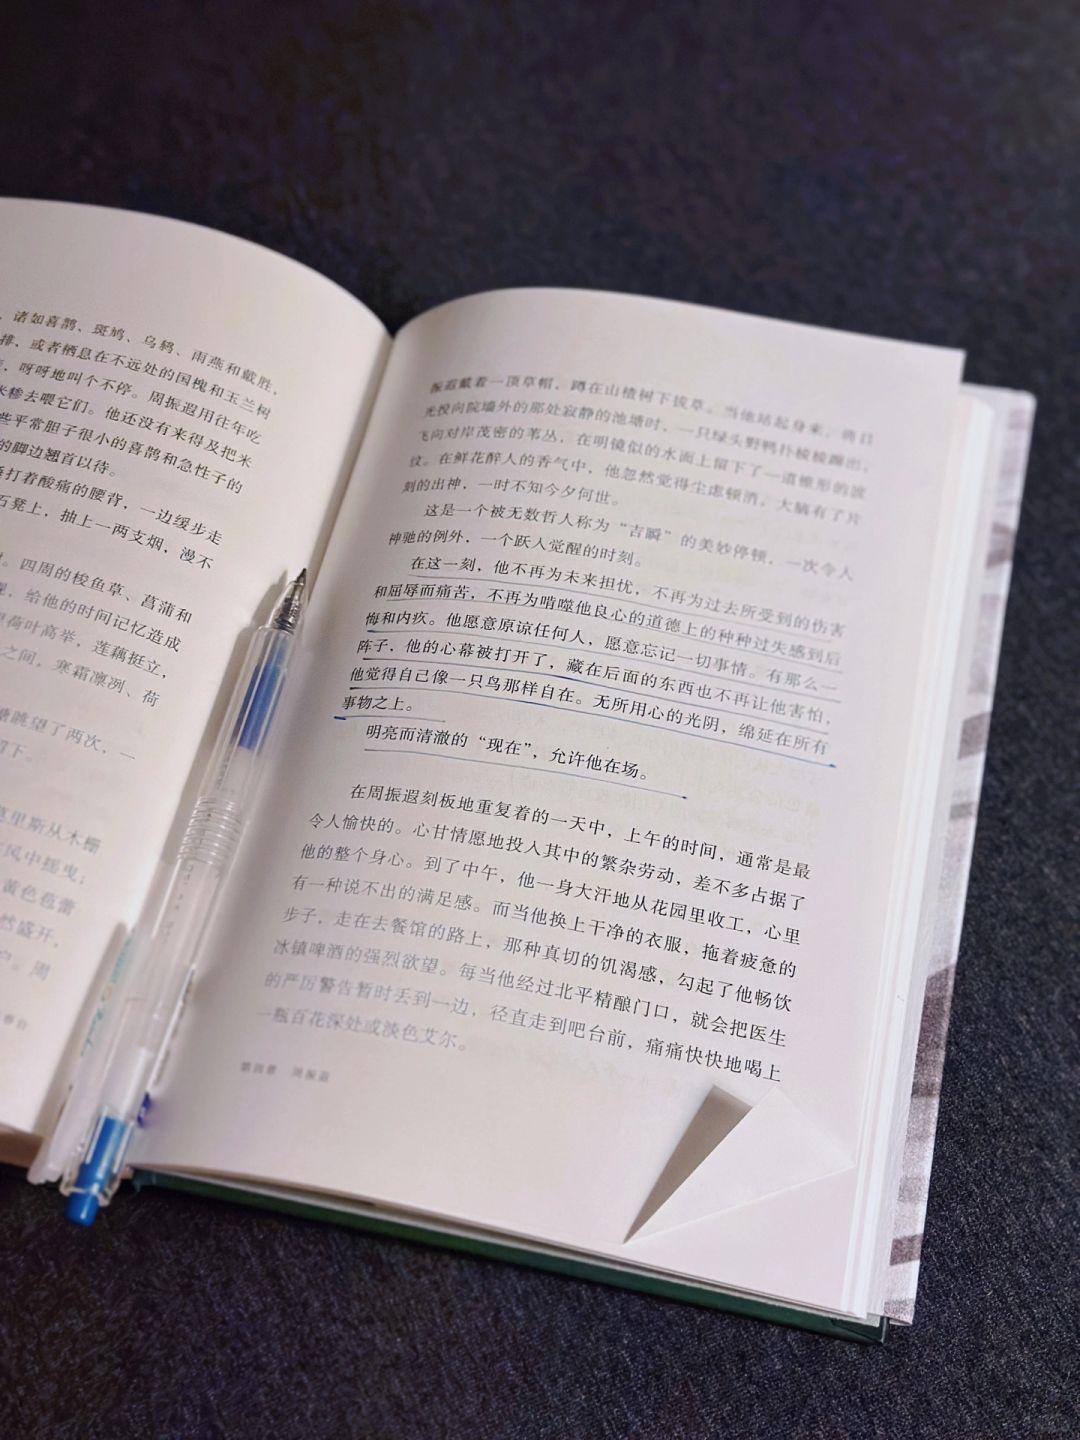 ，诸如喜鹊、斑鸠、乌鸫、雨燕和戴胜，
排，或者栖息在不远处的国槐和玉兰树
，呀呀地叫个不停。周振遐用往年吃
米糁去喂它们。他还没有来得及把米
些平常胆子很小的喜鹊和急性子的
的脚边翘首以待。
捶打着酸痛的腰背，一边缓步走
石凳上，抽上一两支烟，漫不
。四周的梭鱼草、菖蒲和
，给他的时间记忆造成
荷叶高举，莲藕挺立，
之间，寒霜凛冽、荷
塘眺望了两次，一
留下。
莫里斯从木栅
风中摇曳；
黄色苞蕾
然盛开，
，周
振遐戴着一顶草帽，蹲在山楂树下拔草。当他站起身来，将目
光投向院墙外的那处寂静的池塘时，一只绿头野鸭扑棱棱蹿出，
飞向对岸茂密的苇丛，在明镜似的水面上留下了一道锥形的波
纹。在鲜花醉人的香气中，他忽然觉得尘虑顿消，大脑有了片
刻的出神，一时不知今夕何世。
这是一个被无数哲人称为“吉瞬”的美妙停顿，一次令人
神驰的例外，一个跃人觉醒的时刻。
在这一刻，他不再为未来担忧，不再为过去所受到的伤害
和屈辱而痛苦，不再为啃噬他良心的道德上的种种过失感到后
悔和内疚。他愿意原谅任何人，愿意忘记一切事情。有那么一
阵子，他的心幕被打开了，藏在后面的东西也不再让他害怕，
他觉得自己像一只鸟那样自在。无所用心的光阴，绵延在所有
事物之上。
明亮而清澈的“现在”，允许他在场。
在周振遐刻板地重复着的一天中，上午的时间，通常是最
令人愉快的。心甘情愿地投入其中的繁杂劳动，差不多占据了
他的整个身心。到了中午，他一身大汗地从花园里收工，心里
有一种说不出的满足感。而当他换上干净的衣服，拖着疲惫的
步子，走在去餐馆的路上，那种真切的饥渴感，勾起了他畅饮
冰镇啤酒的强烈欲望。每当他经过北平精酿门口，就会把医生
的严厉警告暂时丢到一边，径直走到吧台前，痛痛快快地喝上
一瓶百花深处或淡色艾尔。
第四章 周振遐